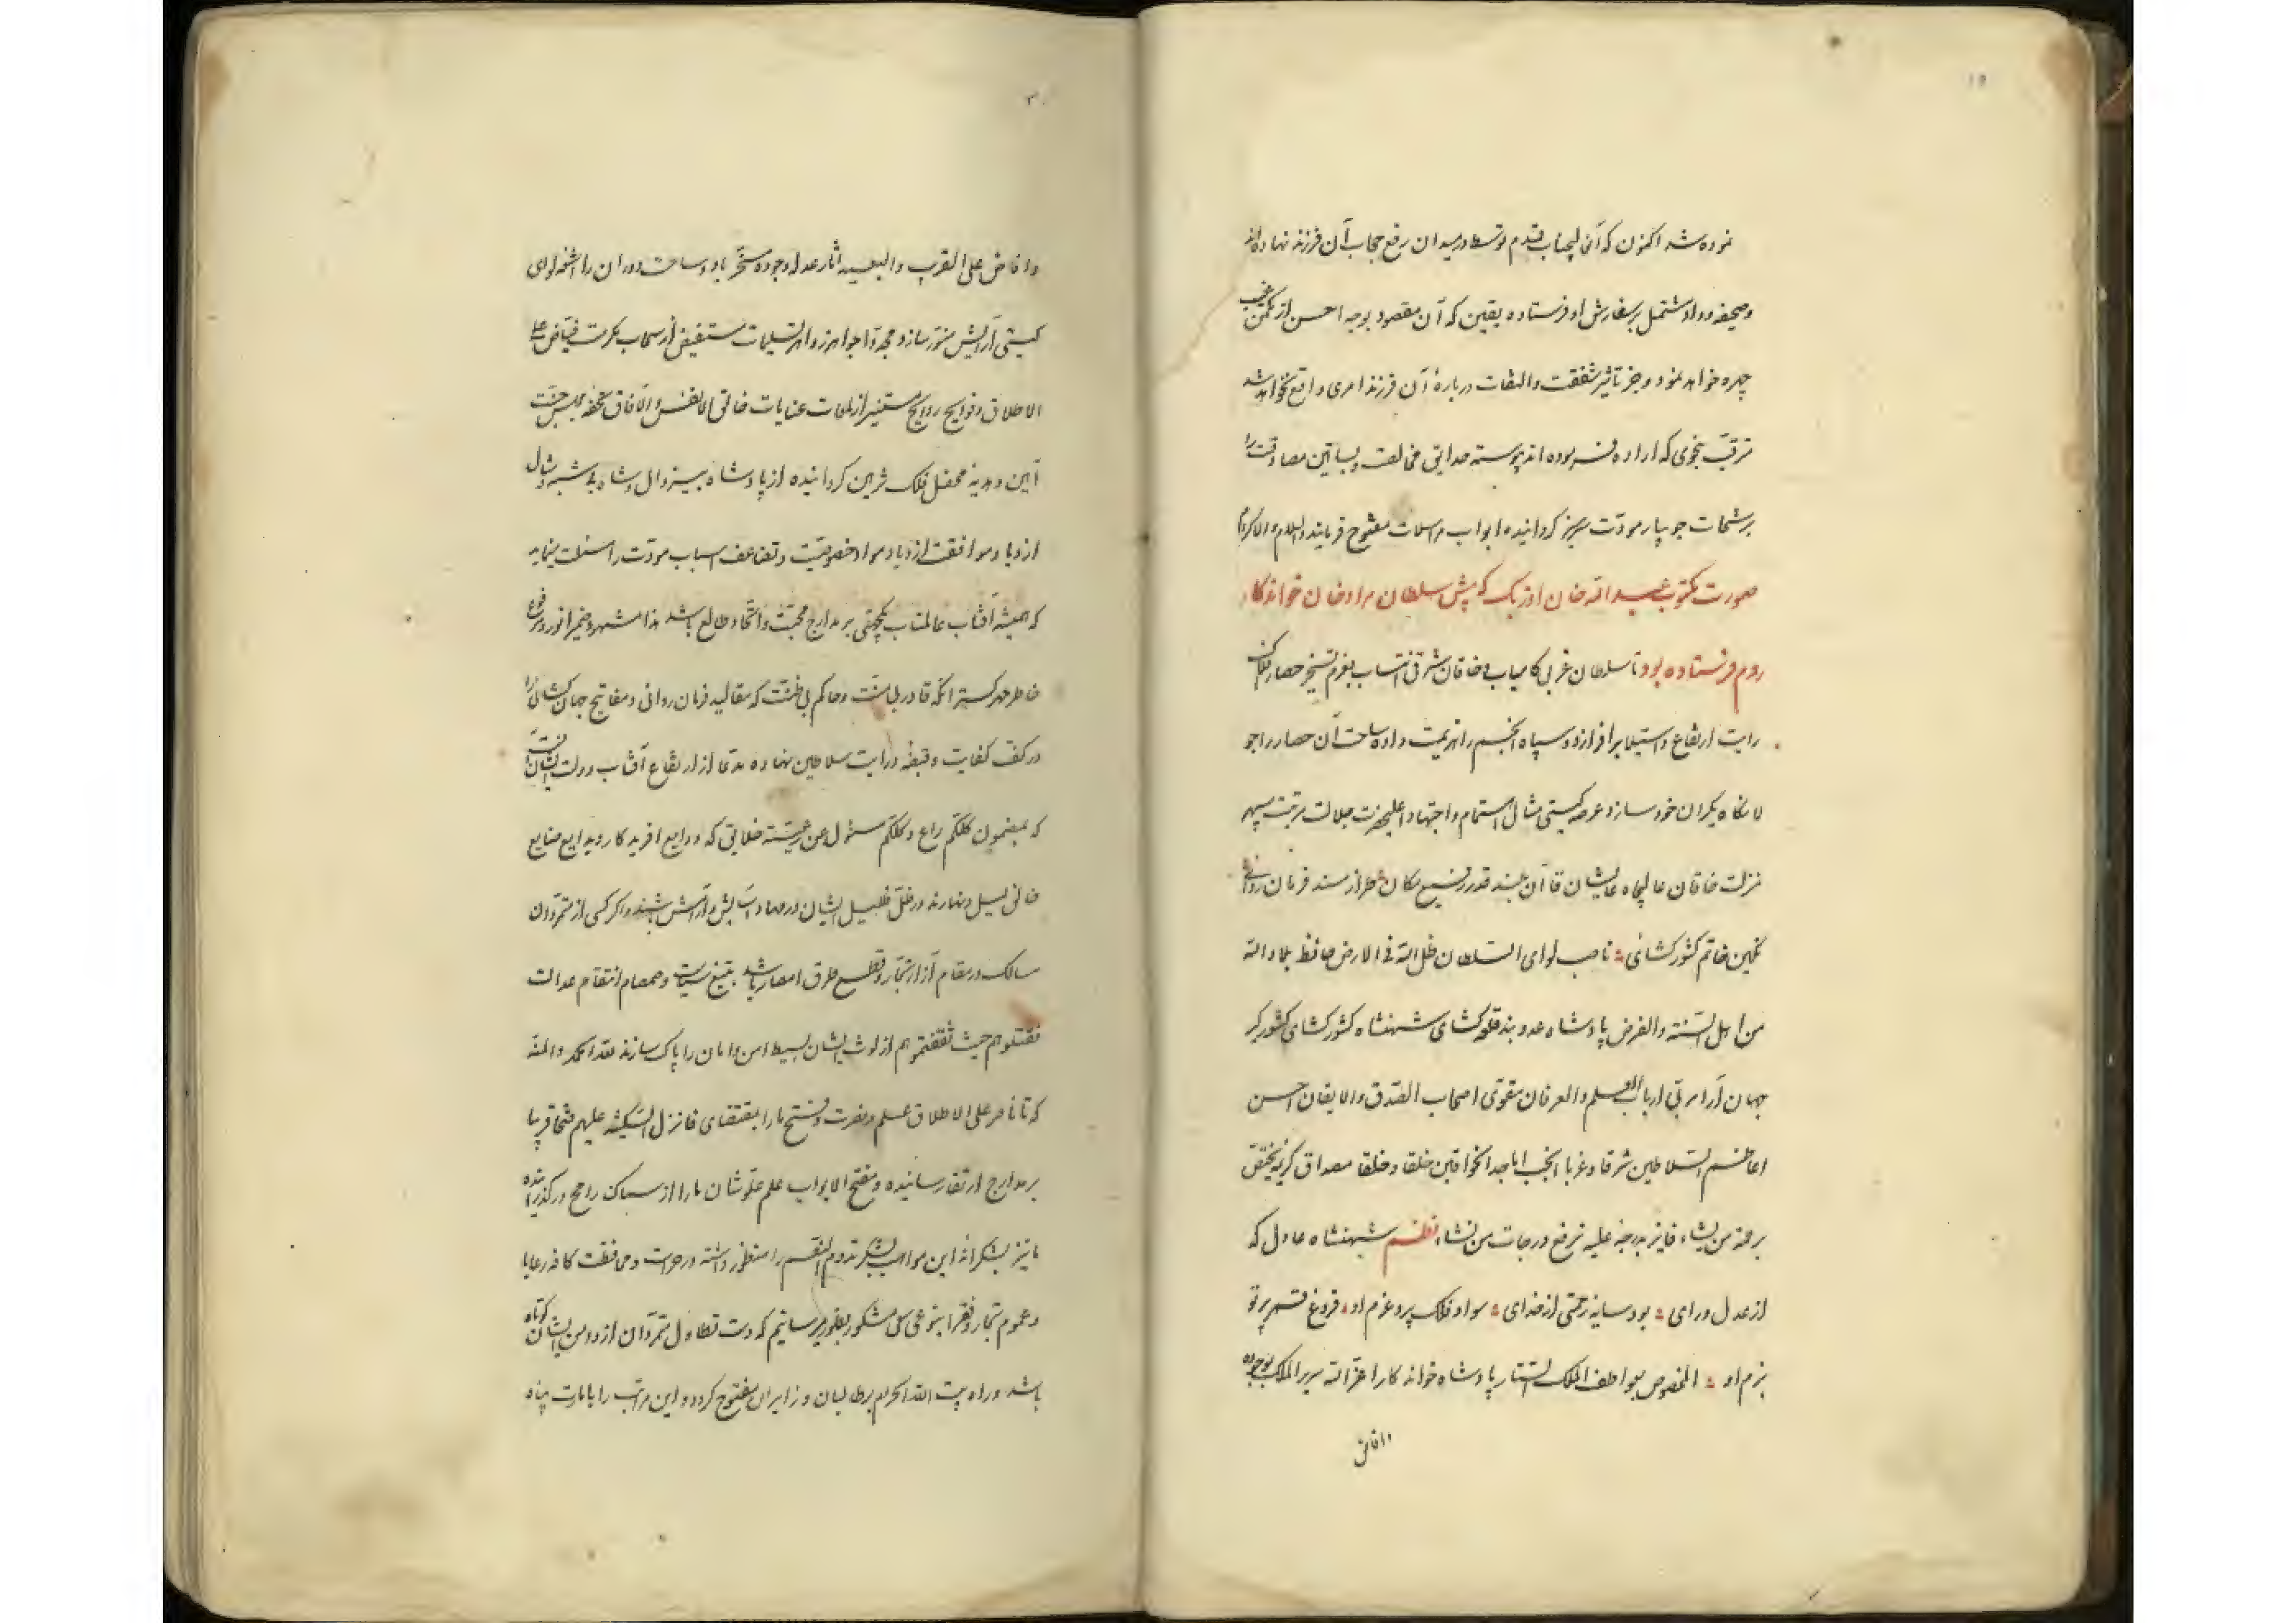 نموده شد اکنون که آن عالیجناب قدم توسط در میدان رفع حجاب آن فرزند نهاده اند
وصحیفه وداد مشتمل بر سفارش او فرستاده یقین که آن مقصود بوجه احسن از مکمن غیب
چهره خواهد نمود و جز تاثیر شفقت والتفات درباره آن فرزند امری واقع نخواهد شد
مترقب بنحوی که اراده فرموده اند پیوسته حدایق مخالصت وبساتین مصادقت را
برشحات جویبار مودت سبز کردانیده ابواب مراسلات مفتوح فرمایند والسلام والاکرام
صورت مکتوب عبد الله خان اوزبک که پیش سلطان مراد خان خواندکار
روم فرستاده بود تا سلطان غربی کامیاب وخاقان شرقی انتساب بعزم تسخیر حصار
رایت ارتفاع واستیلا برافرازد وسپاه انجم را هزیمت داده ساحت آن حصار را جو
لانکاه یکران خود سازد وعرصه کیتی مثال اهتمام واجتهاد اعلیحضرت جلالت مرتبت سپهر
منزلت خاقان عالیجاه عالیشان قاآن بلند قدر رفیع مکان طراز مسند فرمان روائی
نکین خاتم کشورکشائی ناصب لوای السلطان ظل الله فی الارض حافظ بلاد الله
من اهل السنة والفرض پادشاه عدوبند قلعه کشای شهنشاه کشورکشای کشورکیر
جهان آرا مربی ارباب العلم والعرفان مقوی اصحاب الصدق والایقان احسن
اعاظم السلاطین شرقا وغربا انجب اماجد الخواقین خلقا وخلقا مصداق کریمه یختص
برحمته من یشاء فایز بدرجه علیه نرفع درجات من نشاء نظم شهنشاه عادل که
از عدل ورای بود سایه رحمتی از خدای سواد فلک پرد عزم او فروغ قمر پرتو
بزم او المخصوص بعواطف الملک الستار پادشاه خواندکار اعز الله سریر الملک بوجوده
وافاض
وافاض علی القریب والبعید آثار عدله وجوده مسخر باد وساحت دوران را اشعه لوای
کیتی آرایش منور سازد مجددا جواهر زواهر تسلیمات مستفیض از سحاب مکرمت فیاض علی
الاطلاق وفوایح روایح مستنیر از لمعات عنایات خالق الانفس والآفاق تحفه مجلس جنت
آیین وهدیه محفل فلک قرین کردانیده از پادشاه بیزوال وشاه بی شبه ومثال
ازدیاد موافقت ازدیاد مواد خصوصیت وتضاعف اسباب مودت را مسئلت مینماید
که همیشه آفتاب عالمتاب یکجهتی بر مدارج محبت واتحاد طالع باشد هذا مشهود ضمیر انور ومرفوع
خاطر مهر کستر آنکه قادر بی انت وحاکم بی ظنت که مقالید فرمان روائی ومفاتیح جهان کشائی را
در کف کفایت وقبضه درایت سلاطین نهاده مدعا از ارتفاع آفتاب دولت ایشان آنست
که بمضمون کلکم راع وکلکم مسئول عن رعیته خلایق که ودایع آفریدکار وبدایع صنایع
خالق لیل ونهارند در ظل ظلیل ایشان در مهاد آسایش وآرامش باشند واکر کسی از متمردان
سالک در مقام آزار تجار وقطع طرق امصار باشد بتیغ سیاست وصمصام انتقام عدالت
فقتلوهم حیث ثقفتموهم از لوث ایشان بسیط امن وامان را پاک سازند لله الحمد والمنه
که تا ناصر علی الاطلاق علم نصرت وفتح ما را بمقتضای فانزل السکینة علیهم فتحا قریبا
بر مدارج ارتقا رسانیده ومفتح الابواب علم علو شان ما را از سماک رامح درکذرانیده
ما نیز بشکرانه این مواهب بالشکر تدوم النعم را منظور داشته در حراست ومحافظت کافه رعایا
وعموم تجار وفقرا بنوعی سعی مشکور بظهور میرسانیم که دست تطاول متمردان از دامن ایشان کوتاه
باشد وراه بیت الله الحرام بر طالبان وزایران مفتوح کردد واین مراتب را بامارت پناه